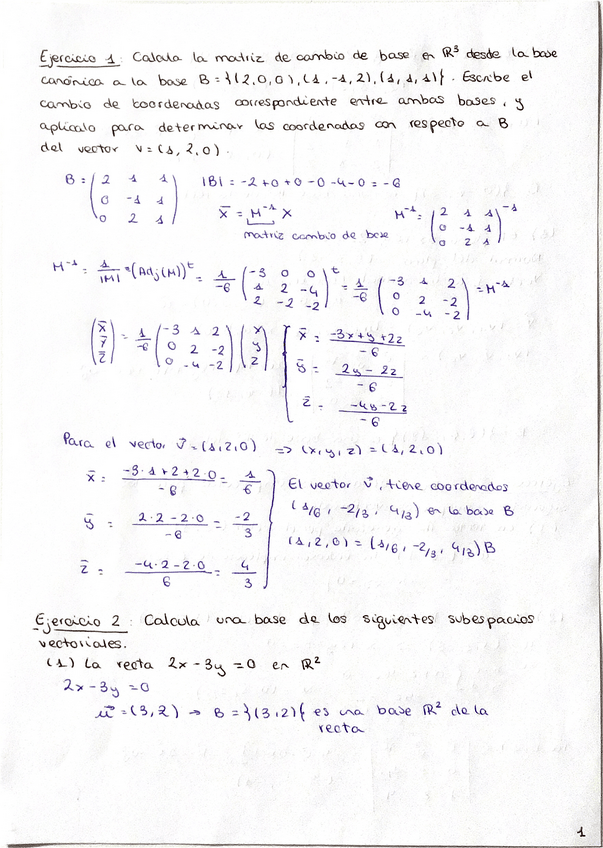 Ejercicio 1: Calcula la matriz de cambio de base en ℝ³ desde la base
canónica a la base B = {(2,0,0),(1,-1,2),(1,1,1)}. Escribe el
cambio de coordenadas correspondiente entre ambas bases, y
aplícalo para determinar las coordenadas con respecto a B
del vector v=(1,2,0).
B = (2 1 1 |B| = -2+0+0-0-4-0 = -6
0 -1 1 X̄ = M⁻¹ X M⁻¹ = (2 1 1)⁻¹
0 2 1) matriz cambio de base (0 -1 1)
(0 2 1)
M⁻¹ = 1/|M| · (Adj(M))ᵗ = 1/-6 (-3 0 0; 1 2 -4; 2 -2 -2)ᵗ = 1/-6 (-3 1 2; 0 2 -2; 0 -4 -2) = M⁻¹
(x̄; ȳ; z̄) = 1/-6 (-3 1 2; 0 2 -2; 0 -4 -2) (x; y; z)
x̄ = -3x+y+2z / -6
ȳ = 2y-2z / -6
z̄ = -4y-2z / -6
Para el vector v⃗=(1,2,0) => (x,y,z) = (1,2,0)
x̄ = -3·1+2+2·0 / -6 = 1/6
ȳ = 2·2-2·0 / -6 = -2/3
z̄ = -4·2-2·0 / 6 = 4/3
El vector v⃗, tiene coordenadas
(1/6, -2/3, 4/3) en la base B
(1,2,0) = (1/6, -2/3, 4/3) B
Ejercicio 2: Calcula una base de los siguientes subespacios
vectoriales.
(1) La recta 2x-3y=0 en ℝ²
2x-3y=0
u⃗=(3,2) → B={(3,2)} es una base ℝ² de la
recta
1